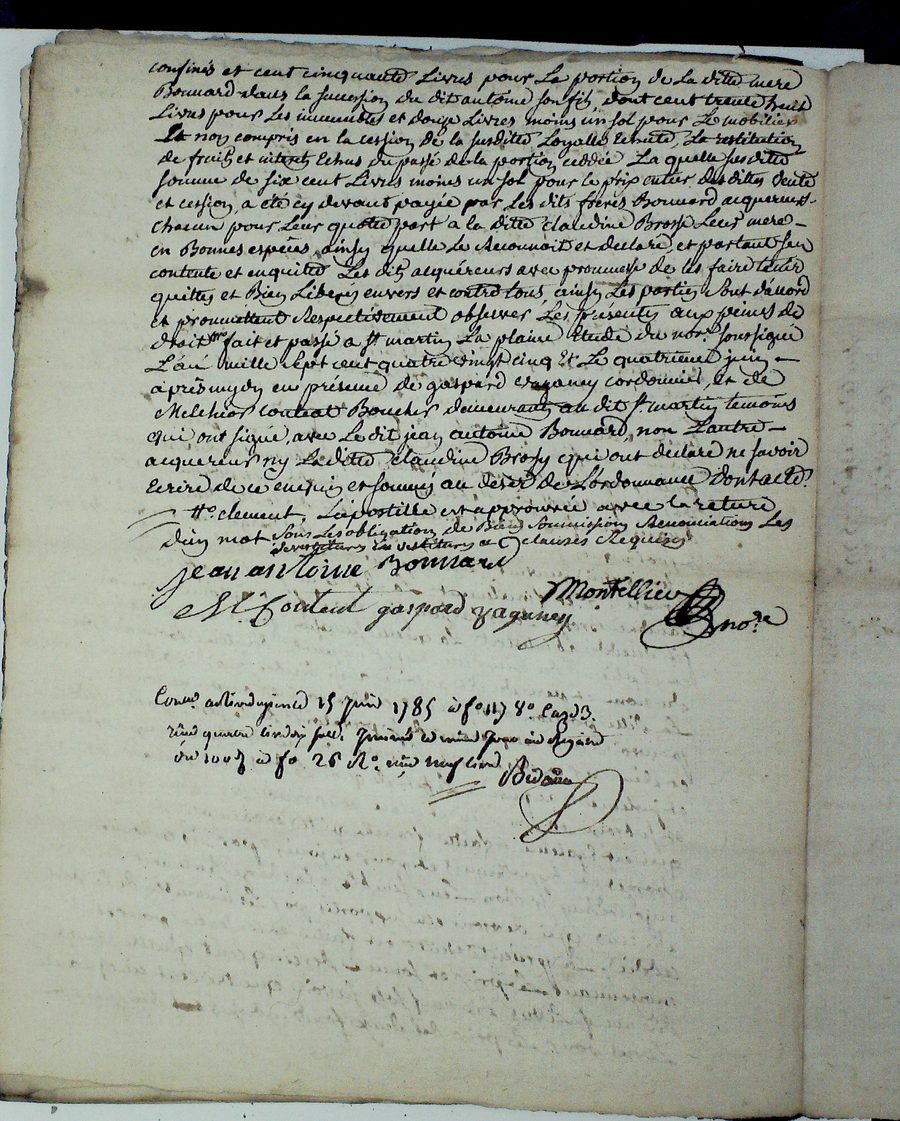 confinés et cent cinquante Livres pour La portion de La ditte mere
Bonnard dans la succession du dit antoine son fils, dont cent trente huit
Livres pour Les immeubles et douze Livres moins un sol pour Le mobilier
Et non compris en la cession de la susditte Loyalle Echute, La restitution
de fruits et interets Echus du passé de la portion ceddée. La quelle susditte
somme de six cent Livres moins un sol pour le prix entier desdittes vente
et cession, a été cy devant payée par Les dits freres Bonnard acquereurs
chacun pour Leur quotte part a la ditte claudine Brosse Leur mere
en Bonnes especes, ainsy quelle Le Reconnoit et declare, et partant s'en
contente et en quitte Les dits acquéreurs avec promesse de les faire tenir
quittes et Bien Liberés envers et contre tous, ainsy Les parties sont d'accord
et promettent Respectivement observer Les presentes aux peines de
droit fait et passé a st martin La plaine Etude du nore. soussigné
L'an mille sept cent quatre vingt cinq Et Le quatrieme juin
après mydy en présence de gaspard vaganey cordonnier, et de
Melchior coutent Boucher demeurants au dit st. martin temoins
qui ont signé, avec Le dit jean antoine Bonnard, non L'autre
acquereur ny La ditte claudine Brosse qui ont déclaré ne savoir
Ecrire de ce enquis et sommés au desir de L'ordonnance Dont acte.
clement, L'apostille est approuvée avec la rature
d'un mot sous Les obligation, de Biens soumissions Renonciations Les
devestitures investitures et clauses Requises
jean antoine Bonnard
Montellier
M. Coutent gaspard vaganey
nore
Conle. 15 juin 1785 fo 117 vo. Case 3.
fo 26 Ro.